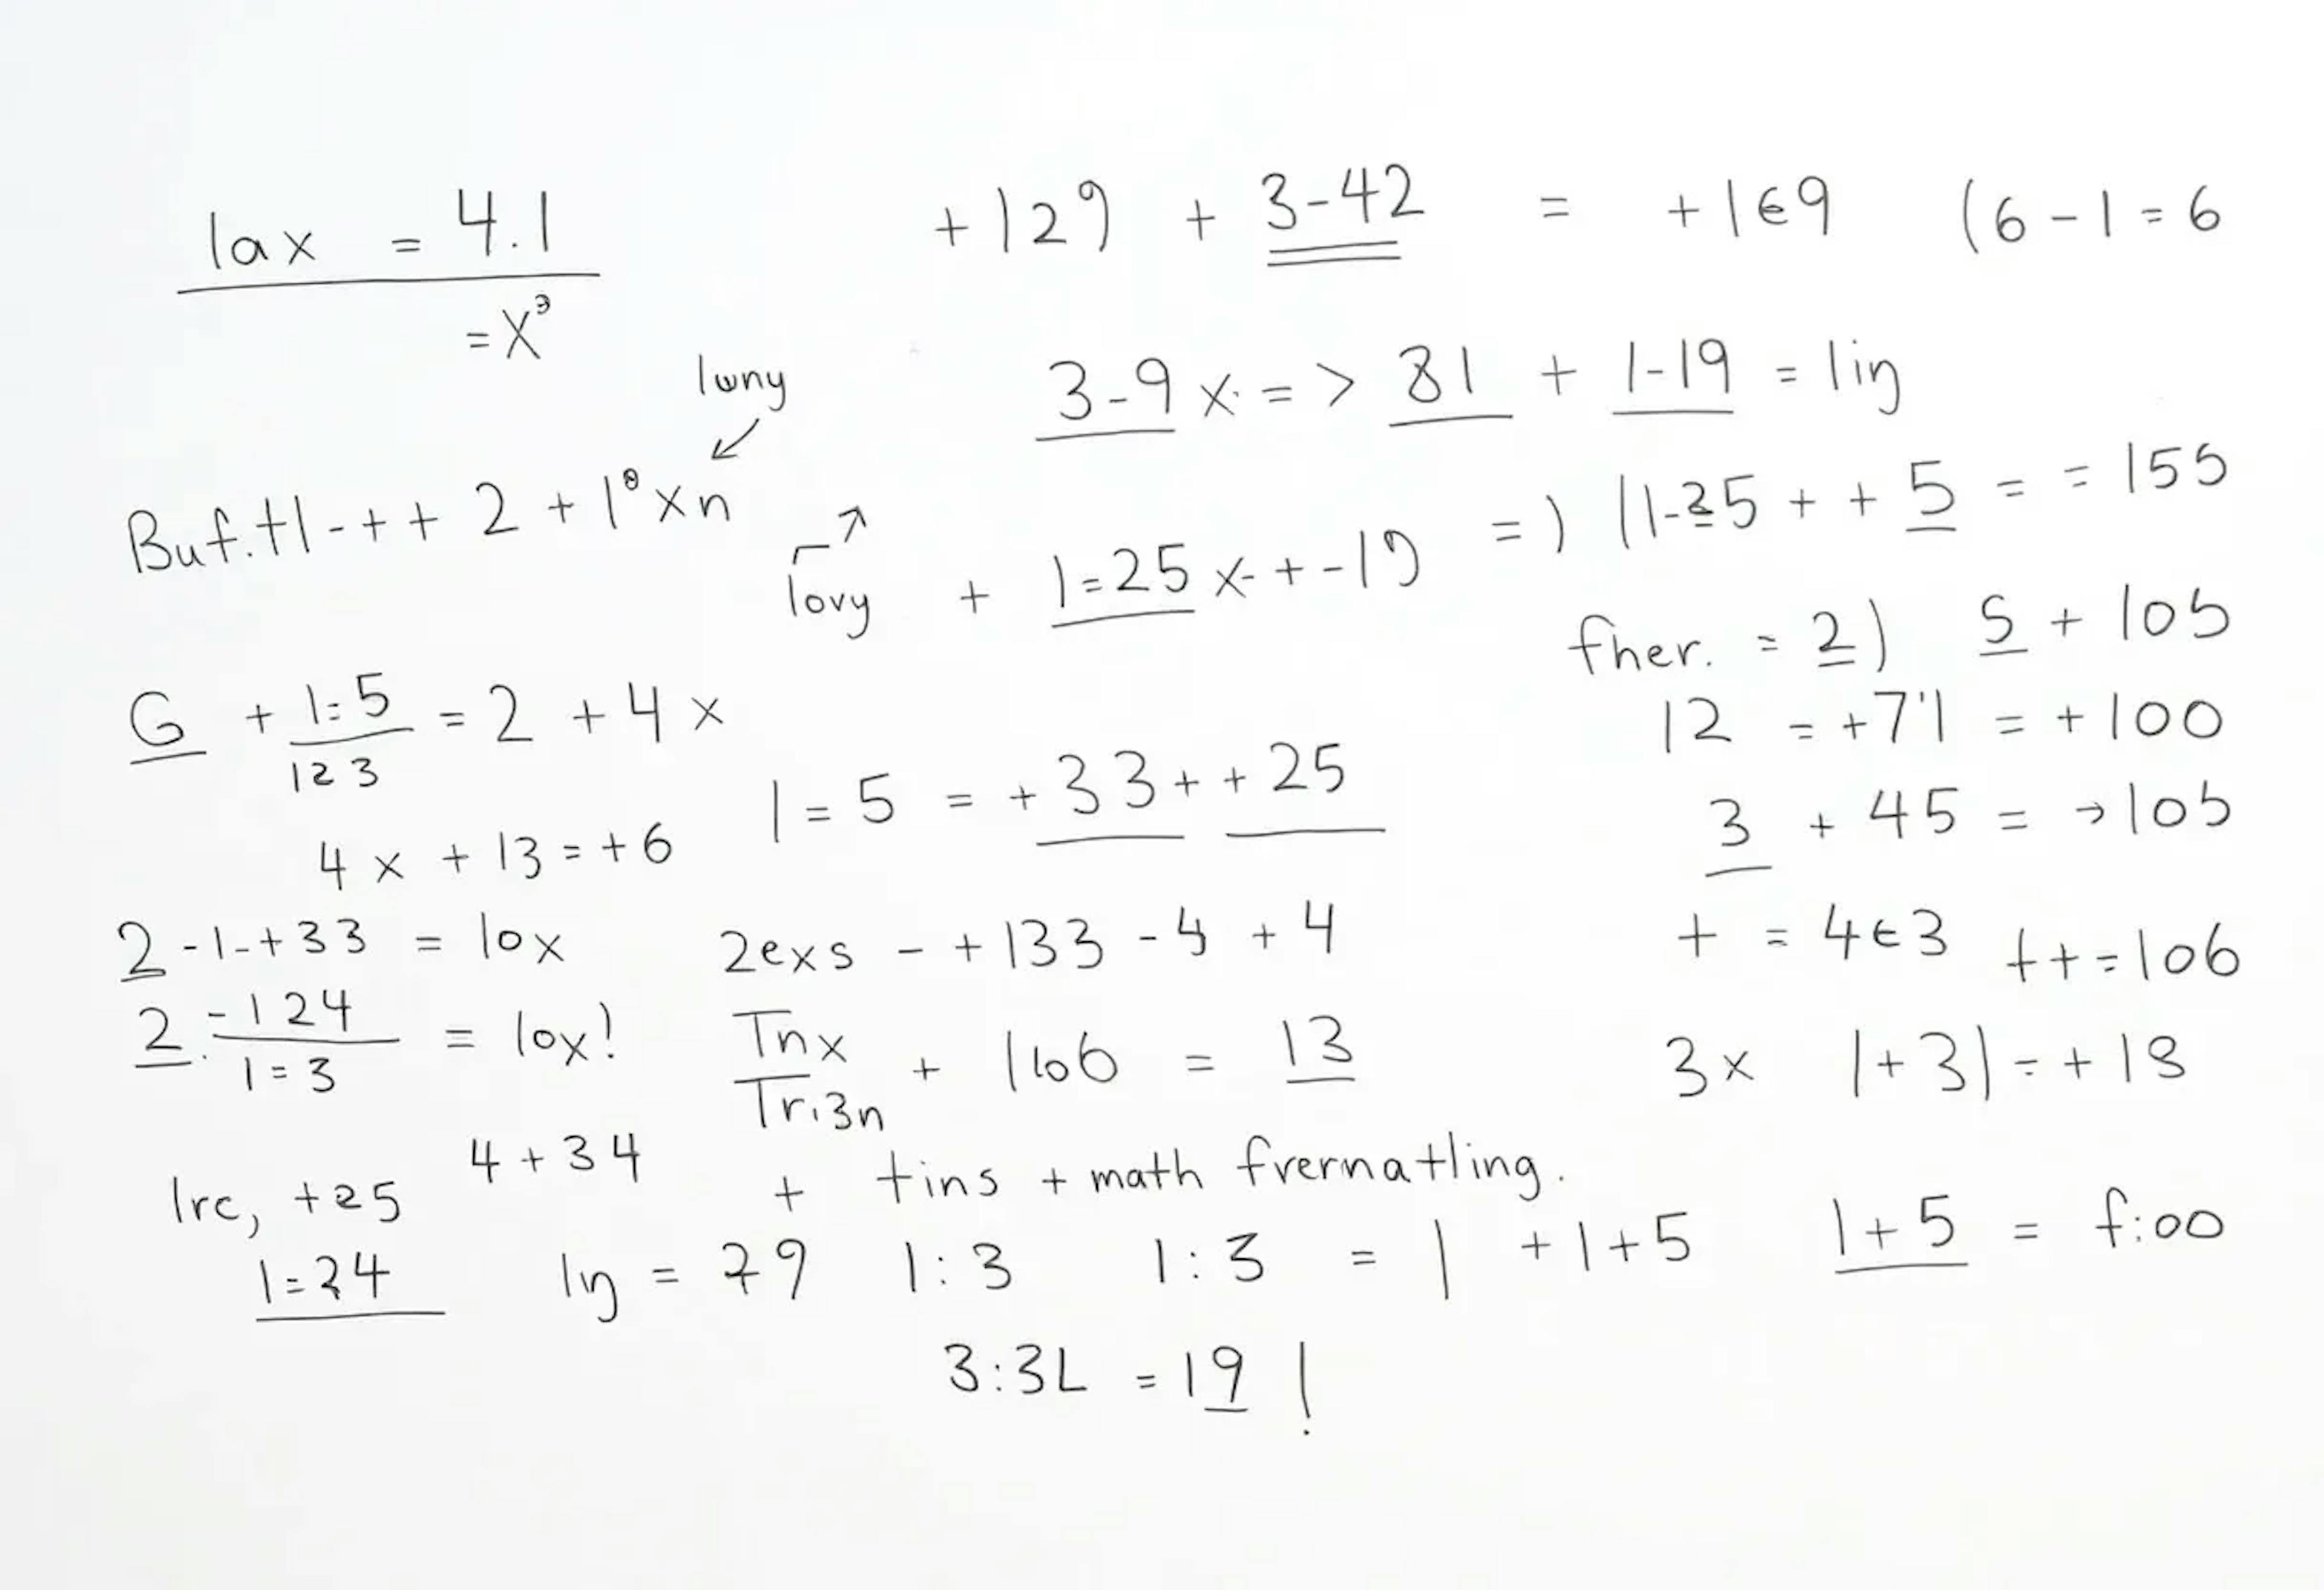 lax = 4.1
= x³
+129) + 3-42 = +1€9 (6-1=6
luny
3-9 x. => 81 + 1-19 = lin
Buf.+1-++ 2 + 1° xn
lovy + 1=25 x-+-19 =) (1-25 + + 5 = = 155
fher. = 2) 5 + 105
G + 1:5 = 2 + 4x
123
12 = +7'1 = +100
1 = 5 = +33+ +25
3 + 45 = →105
4x + 13 = +6
2-1-+33 = lox
2exs - +133 -4 +4
+ = 4€3 ++=106
2. -124 = lox!
1=3
Tnx + 106 = 13
Tri3n
3x 1+3) = +18
4+34
lrc, +25
+ tins + math frernatling.
1=24
ln = 29 1:3 1:3 = | +1+5 1+5 = f:00
3:3L = 19!